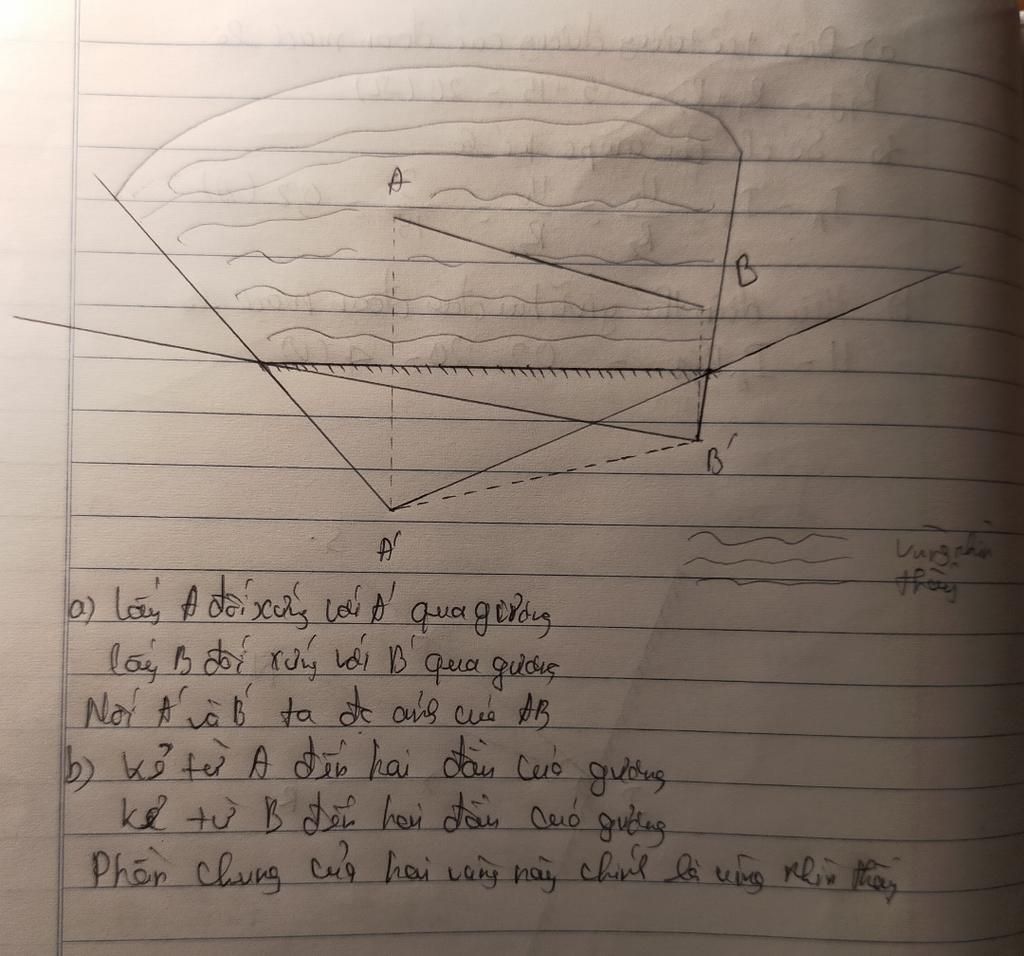 A
B
B'
A'
vùng nhìn
thấy
a) lấy A đối xứng với A' qua gương
lấy B đối xứng với B' qua gương
Nối A' và B' ta đc ảnh của AB
b) kẻ từ A đến hai đầu của gương
kẻ từ B đến hai đầu của gương
Phần chung của hai vùng này chính là vùng nhìn thấy